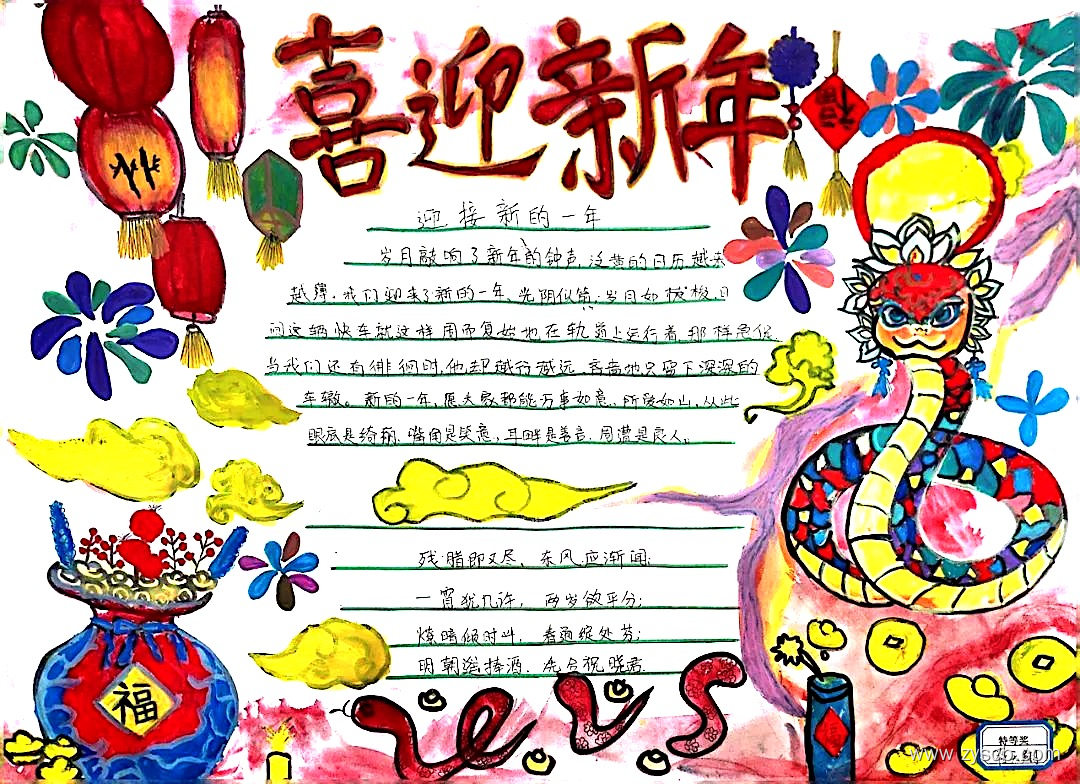 喜迎新年
福
迎接新的一年
岁月敲响了新年的钟声,泛黄的日历越来
越薄,我们迎来了新的一年,光阴似箭,岁月如梭,时
间这辆快车就这样周而复始地在轨道上运行着,那样急促
当我们还有徘徊时,他却越行越远,吝啬地只留下深深的
车辙。新的一年,愿大家都能万事如意,所愿如山,从此
眼底是绮丽,嘴角是笑意,耳畔是善言,周遭是良人。
残腊即又尽,东风应渐闻;
一宵犹几许,两岁欲平分;
燎暗倾时斗,春通绽处芬;
明朝遥捧酒,先合祝
福
2025
特等奖
www.zyscb.com